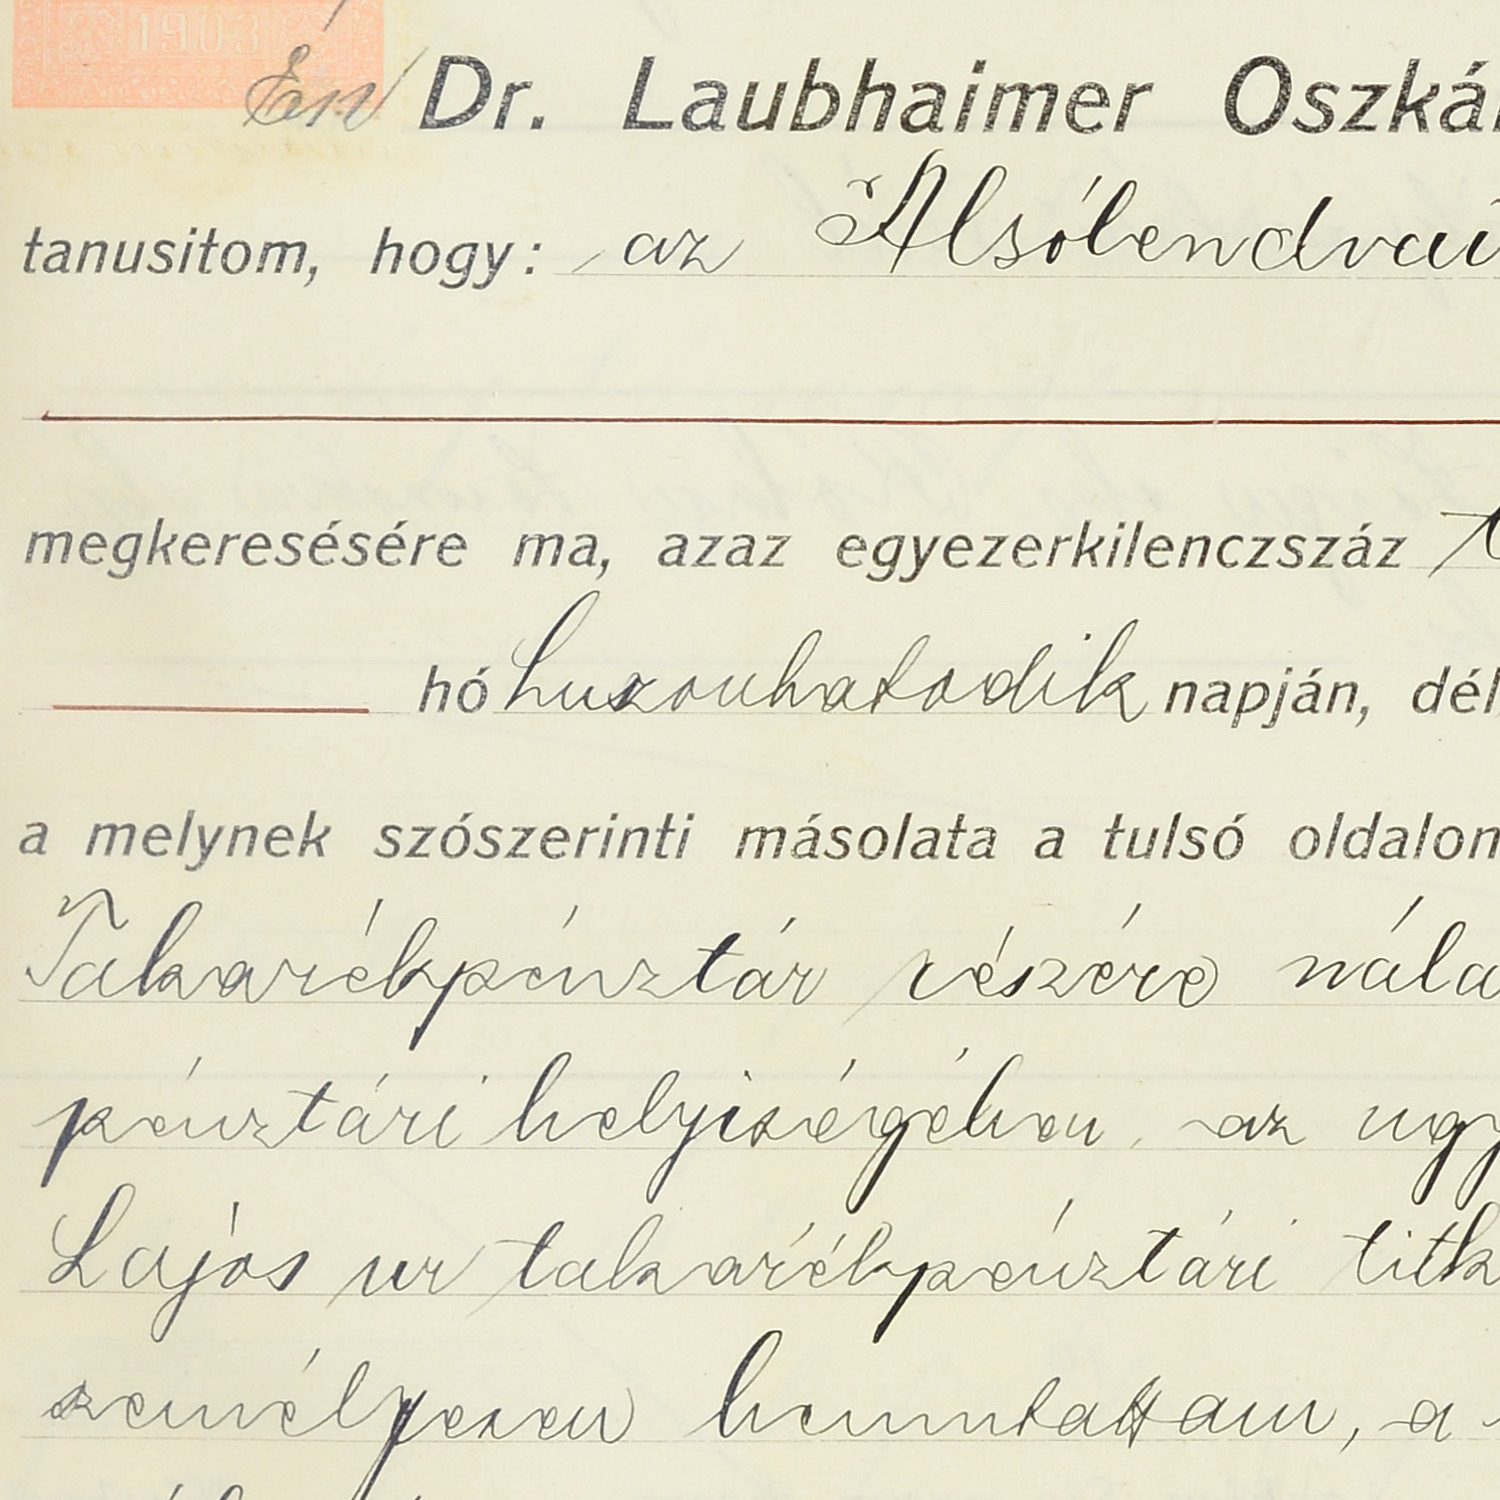 1903
Én Dr. Laubhaimer Oszká
tanusitom, hogy: az Alsólendvai
megkeresésére ma, azaz egyezerkilenczszáz
hó huszonhatodik napján, dél
a melynek szószerinti másolata a tulsó oldalon
Takarékpénztár részére nála
pénztári helyiségében, az ugy
Lajos ur takarékpénztári titk
személyesen bemutattam, a